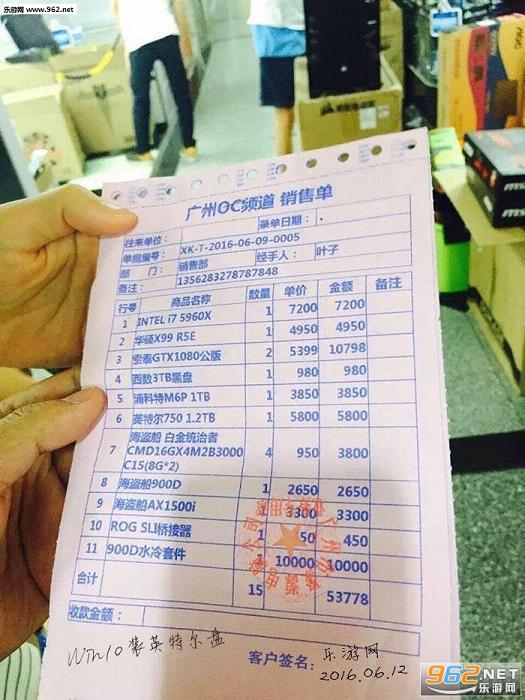 乐游网
www.962.net
广州OC频道 销售单
往来单位： 录单日期：
单据编号： XK-T-2016-06-09-0005
部 门： 销售部 经手人： 叶子
备注： 1356283278787848
行号 商品名称 数量 单价 金额 备注
1 INTEL i7 5960X 1 7200 7200
2 华硕X99 R5E 1 4950 4950
3 索泰GTX1080公版 2 5399 10798
4 西数3TB黑盘 1 980 980
5 浦科特M6P 1TB 1 3850 3850
6 英特尔750 1.2TB 1 5800 5800
7 海盗船 白金统治者 CMD16GX4M2B3000 C15(8G*2) 4 950 3800
8 海盗船900D 1 2650 2650
9 海盗船AX1500i 3300 3300
10 ROG SLI桥接器 450
11 900D水冷套件 1 10000 10000
合计 15 53778
收款金额：
Win10 装英特尔盘
客户签名： 乐游网
2016.06.12
962.NET
乐游网